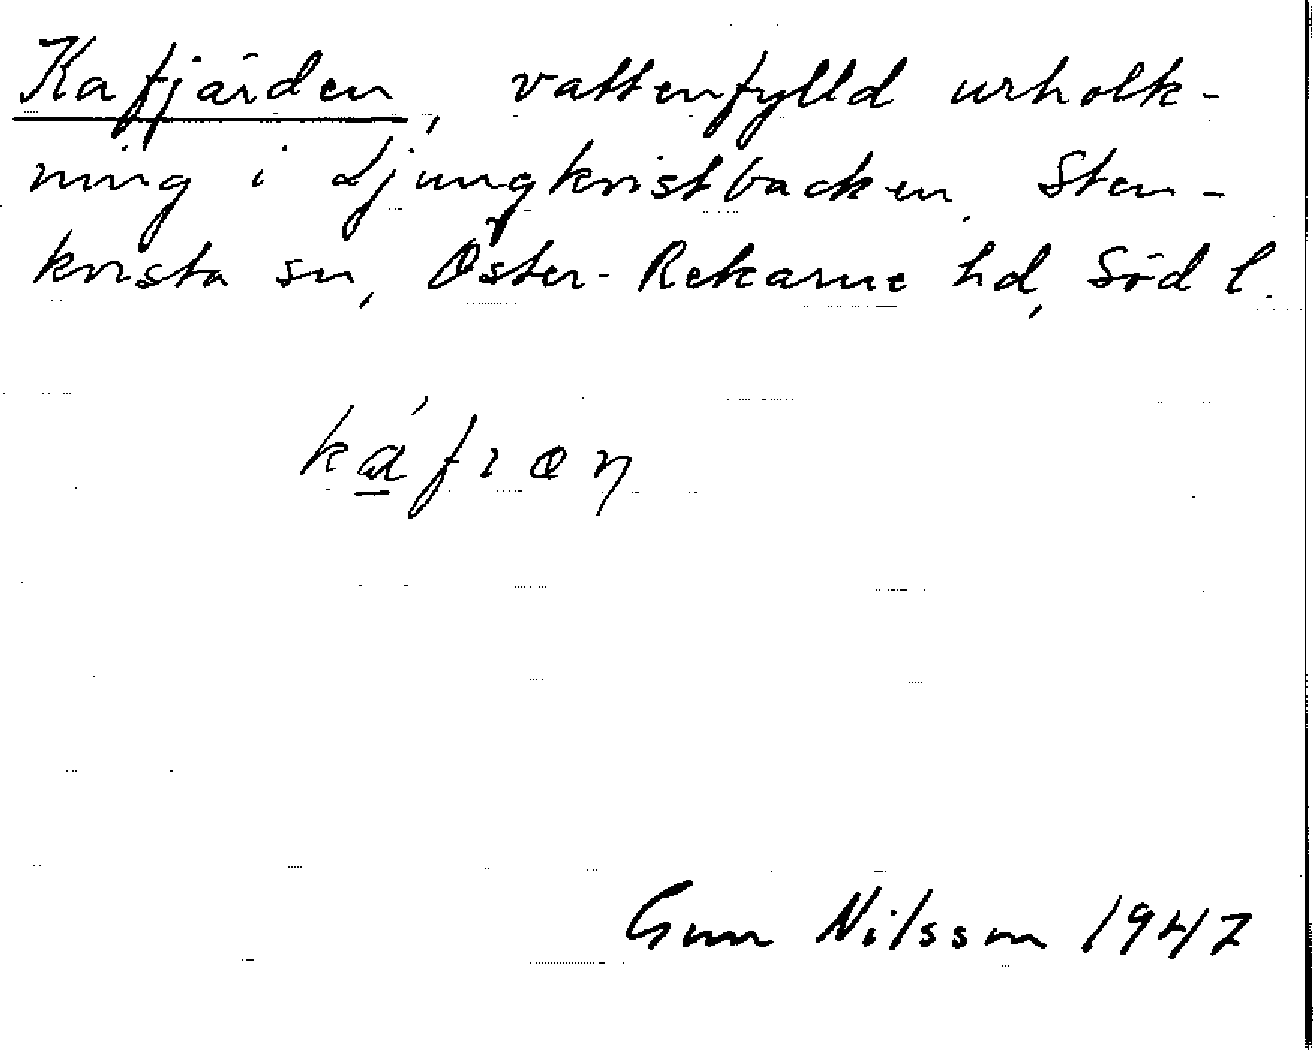 Kafjärden, vattenfylld urholk-
ning i Ljungkvistbacken. Sten-
kvista sn, Öster-Rekarne hd, Söd l.
Gun Nilsson 1947